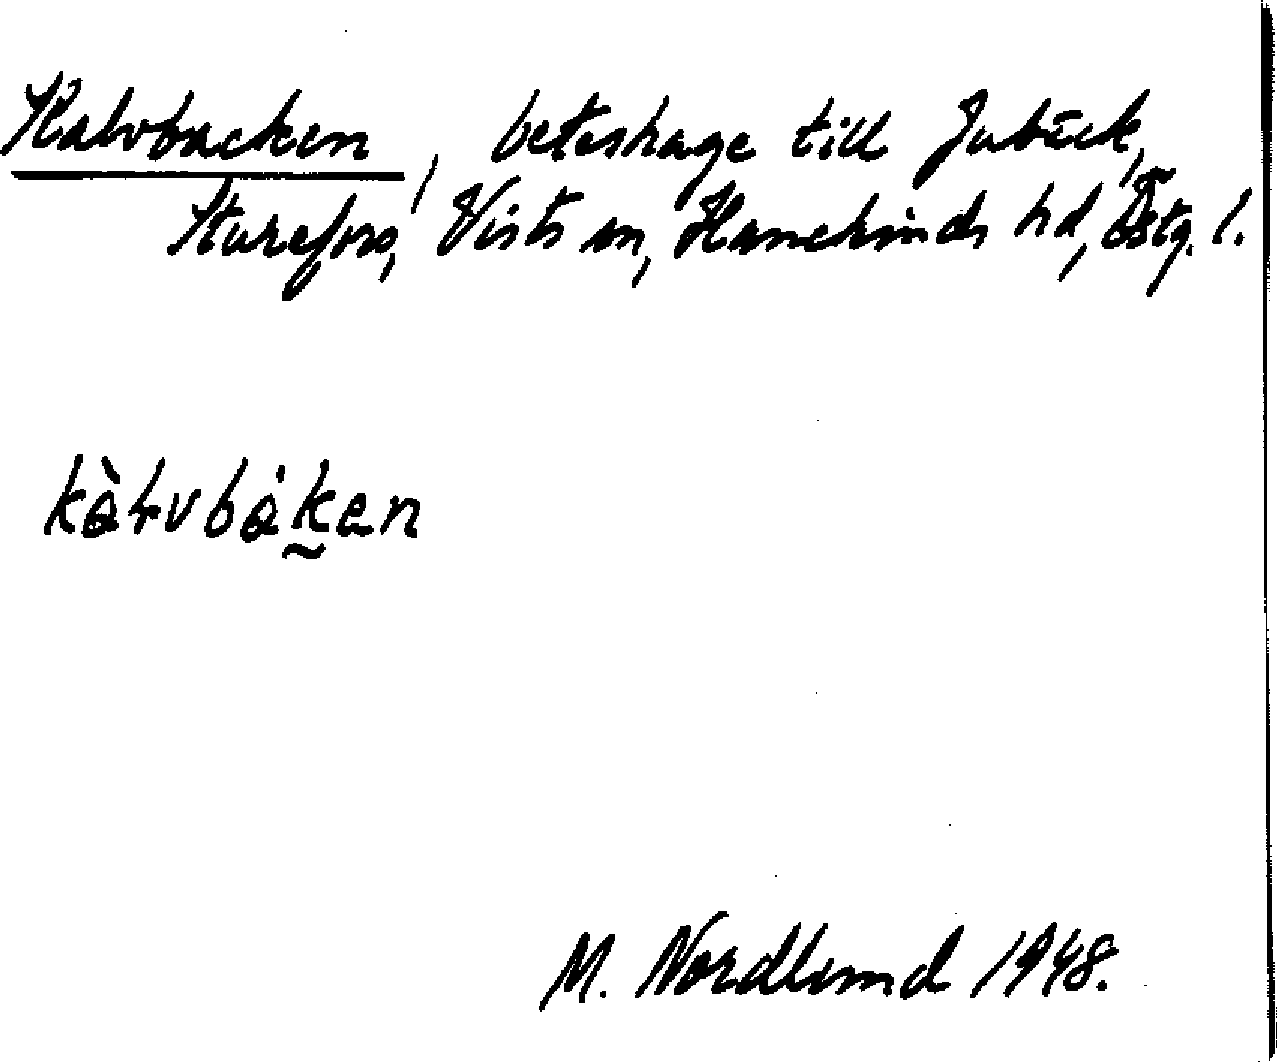 Kalvbacken, beteshage till Jubäck,
Sturefors, Vists sn, Hanekinds hd, Östg. l.
kàɫvbáken
M. Nordlund 1948.